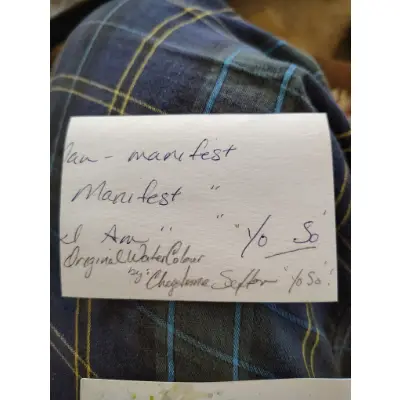 an - manifest
Manifest "
I Am " " "Yo So"
Original WaterColour
by "Cheyenne Sefton "Yo So".